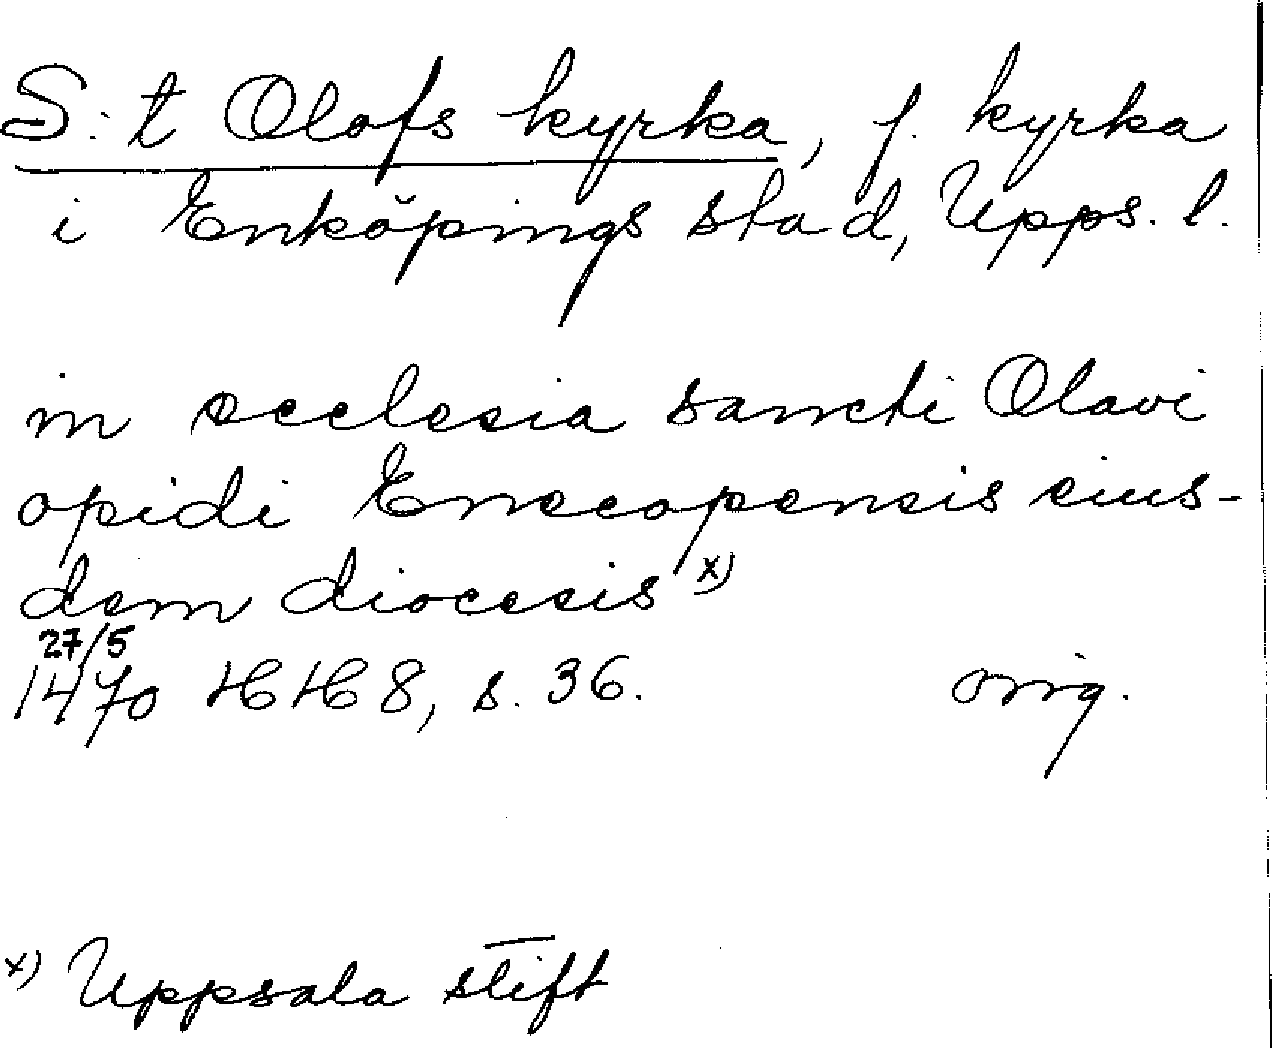 S:t Olofs kyrka, f. kyrka
i Enköpings stad, Upps. l.
in ecclesia sancti Olavi
opidi Enecopensis eius-
dem diocesis x)
27/5
1470 HH 8, s. 36. orig.
x) Uppsala stift